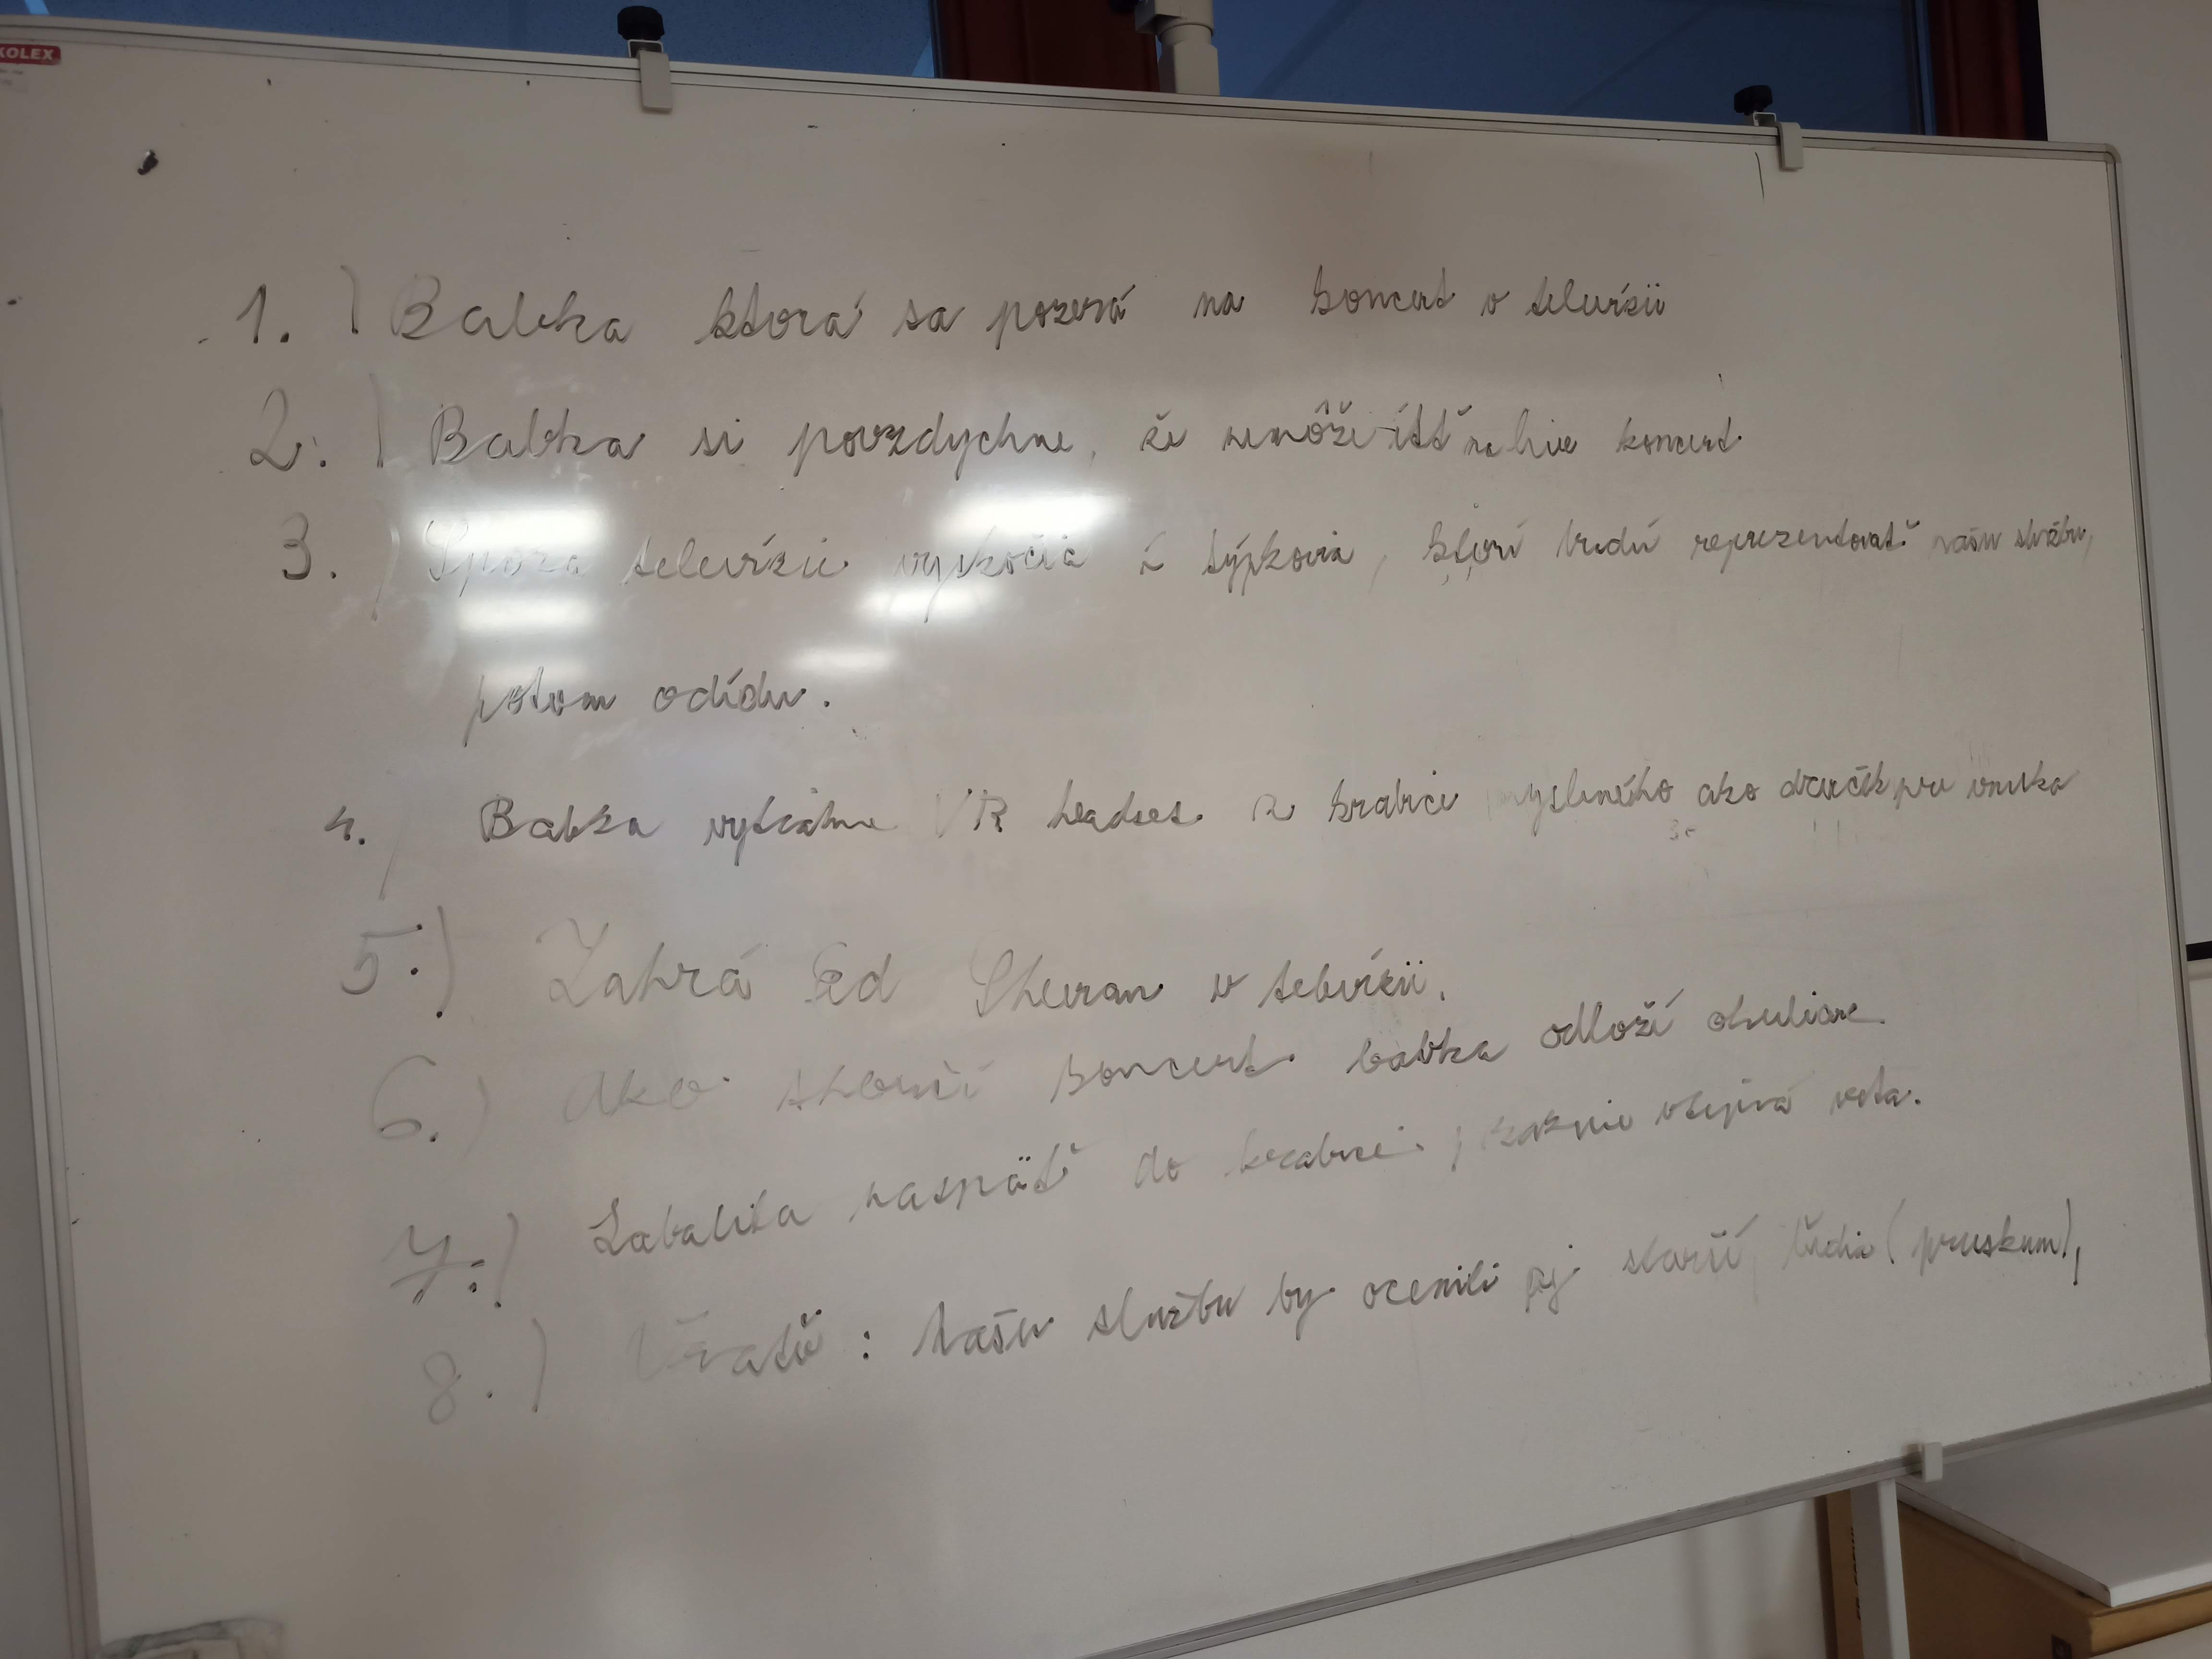 KOLEX
1.) Babka ktorá sa pozerá na koncert v televízii
2.) Babka si povzdychne, že nemôže ísť na live koncert
3.) Spoza televízie vyskočia týpkovia, ktorí budú reprezentovať našu službu,
potom odídu.
4.) Babka vytiahne VR headset z krabice mysleného ako darček pre vnuka
5.) Zahrá Ed Sheeran v televízii.
6.) Ako skončí koncert babka odloží okuliare
7.) Zabalila naspäť do krabice, zaznie vtipná veta.
8.) : Našu službu by ocenili aj starší ľudia (prieskum),